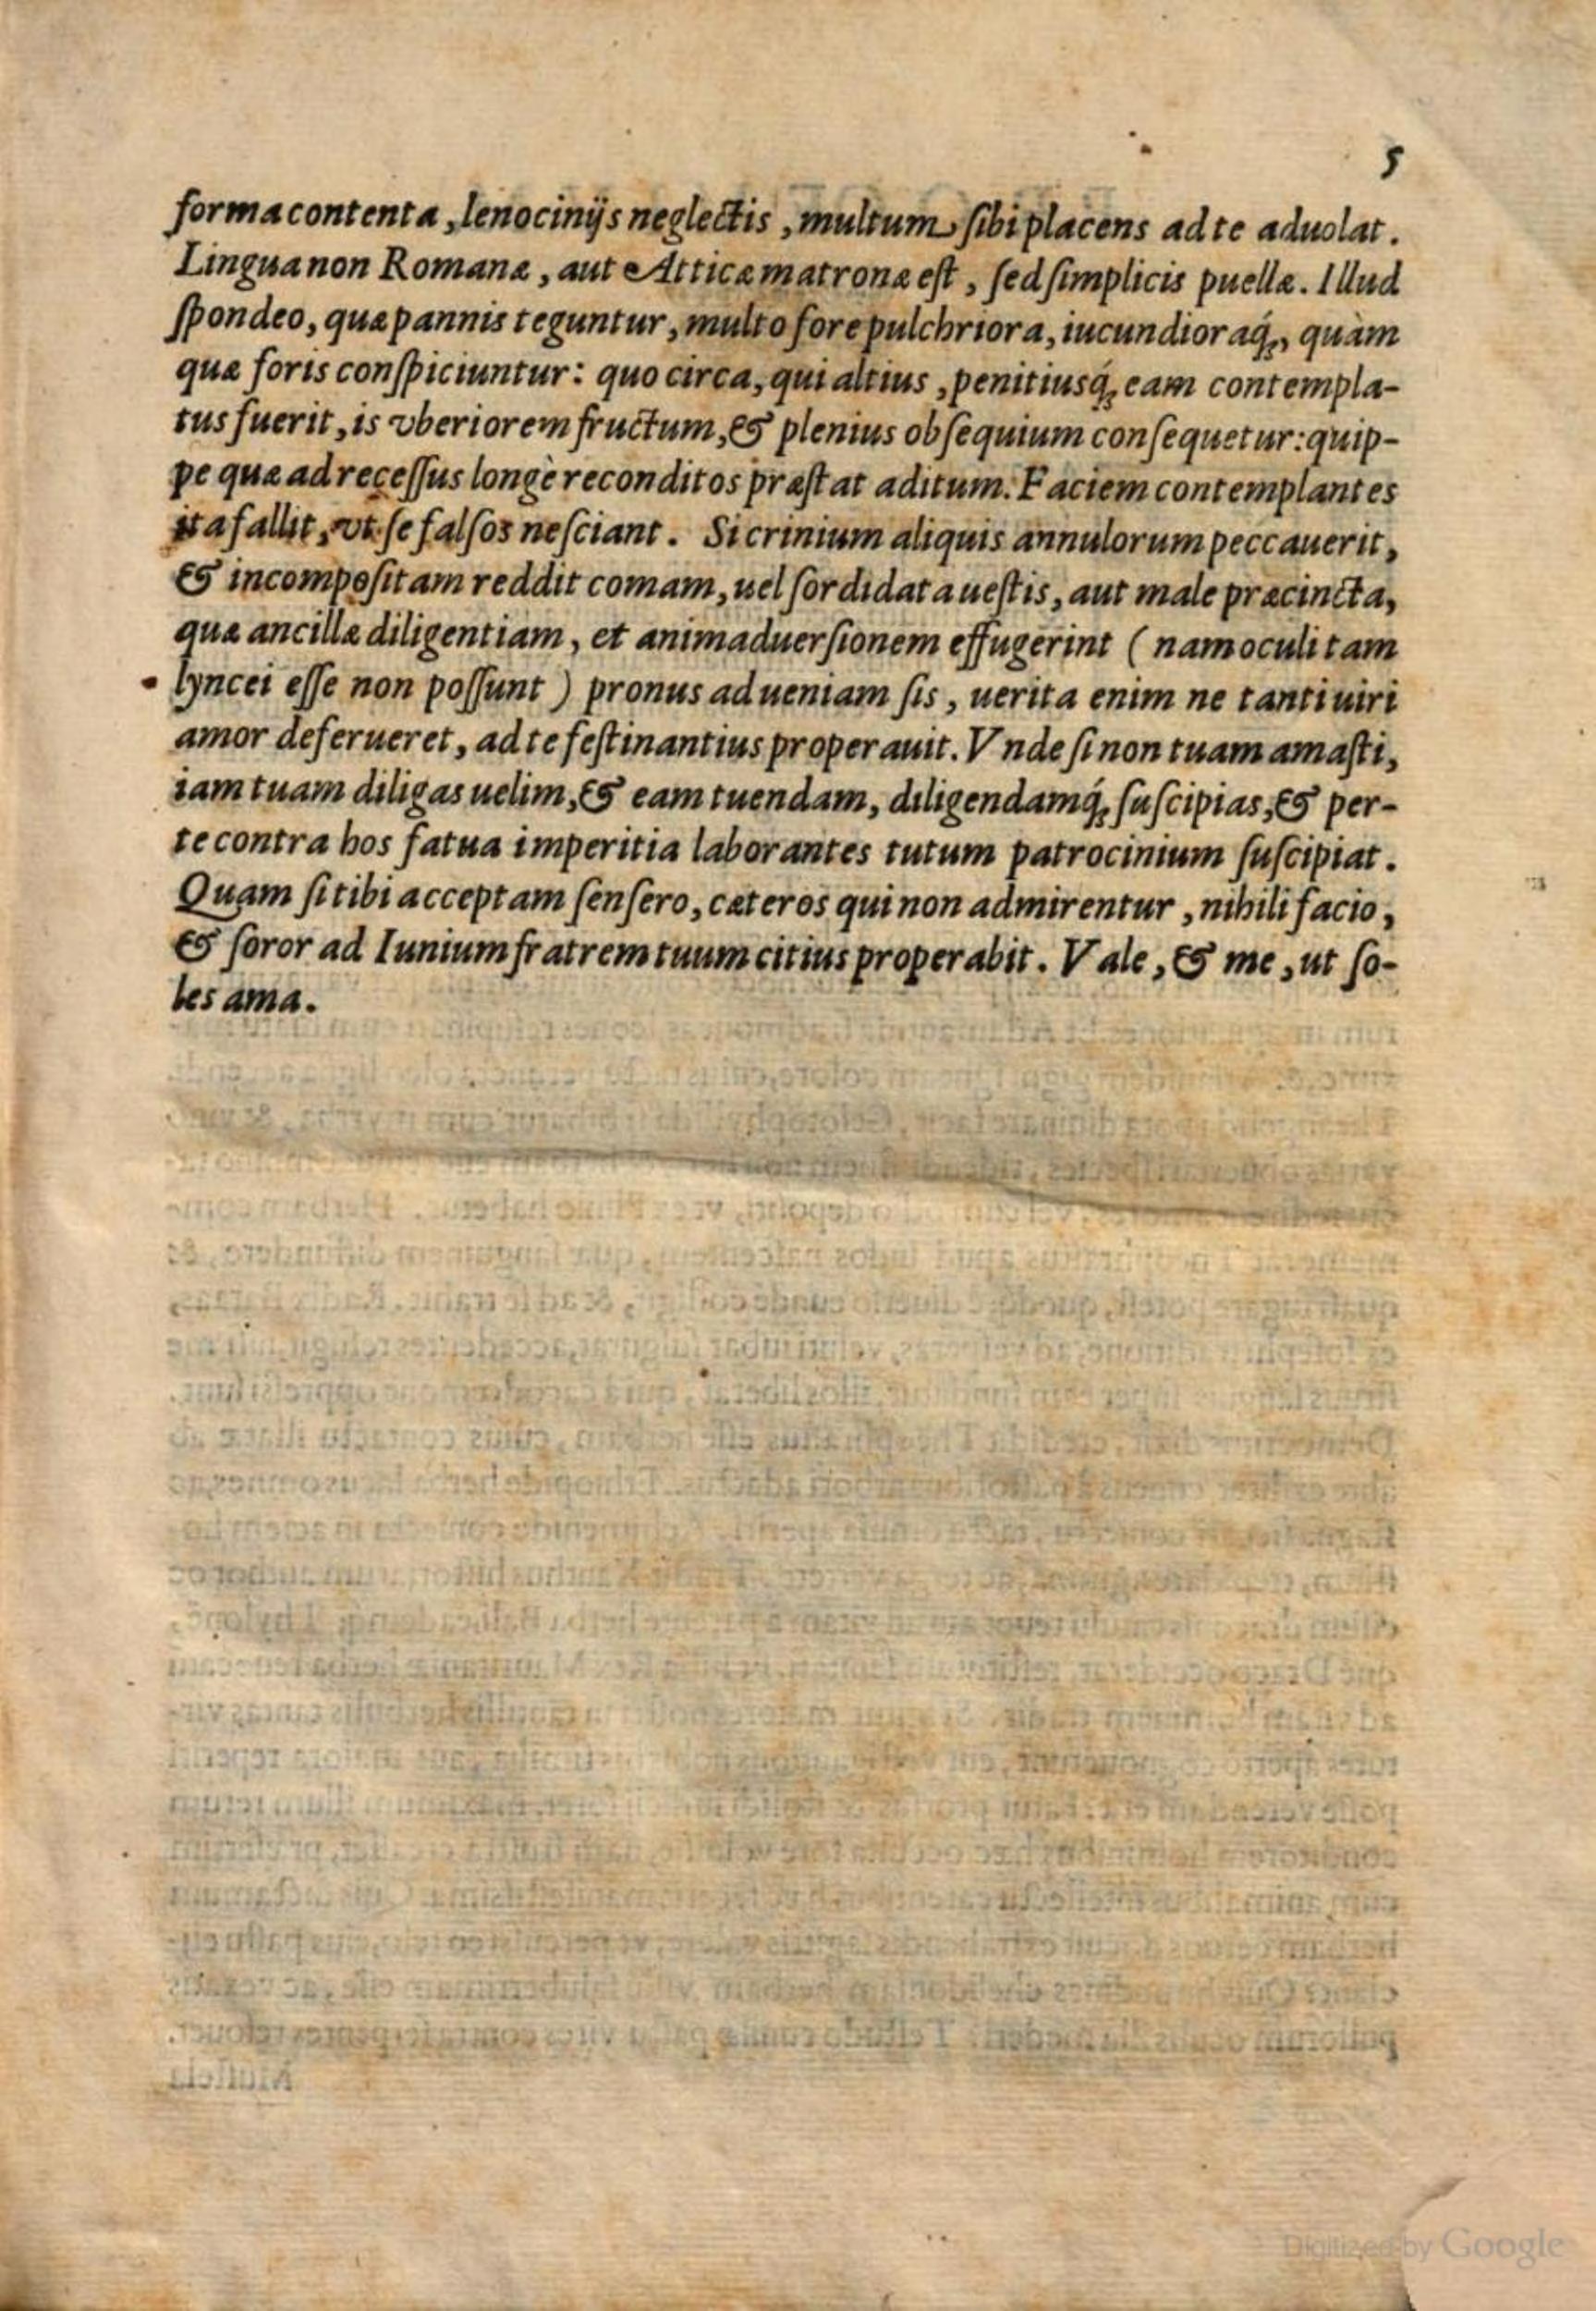 5
forma contenta, lenocinijs neglectis, multum sibi placens ad te aduolat.
Lingua non Romanæ, aut Atticæ matronæ est, sed simplicis puellæ. Illud
spondeo, quæ pannis teguntur, multo fore pulchriora, iucundioraq́;, quàm
quæ foris conspiciuntur: quo circa, qui altius, penitiusq́; eam contempla-
tus fuerit, is vberiorem fructum, & plenius obsequium consequetur: quip-
pe quæ ad recessus longè reconditos præstat aditum. Faciem contemplantes
ita fallit, vt se falsos nesciant. Si crinium aliquis annulorum peccauerit,
& incompositam reddit comam, uel sordidata uestis, aut male præcincta,
quæ ancillæ diligentiam, et animaduersionem effugerint ( nam oculi tam
lyncei esse non possunt ) pronus ad ueniam sis, uerita enim ne tanti uiri
amor deferueret, ad te festinantius properauit. Vnde si non tuam amasti,
iam tuam diligas uelim, & eam tuendam, diligendamq́; suscipias, & per-
te contra hos fatua imperitia laborantes tutum patrocinium suscipiat.
Quam si tibi acceptam sensero, cæteros qui non admirentur, nihili facio,
& soror ad Iunium fratrem tuum citius properabit. Vale, & me, ut so-
les ama.
Digitized by Google